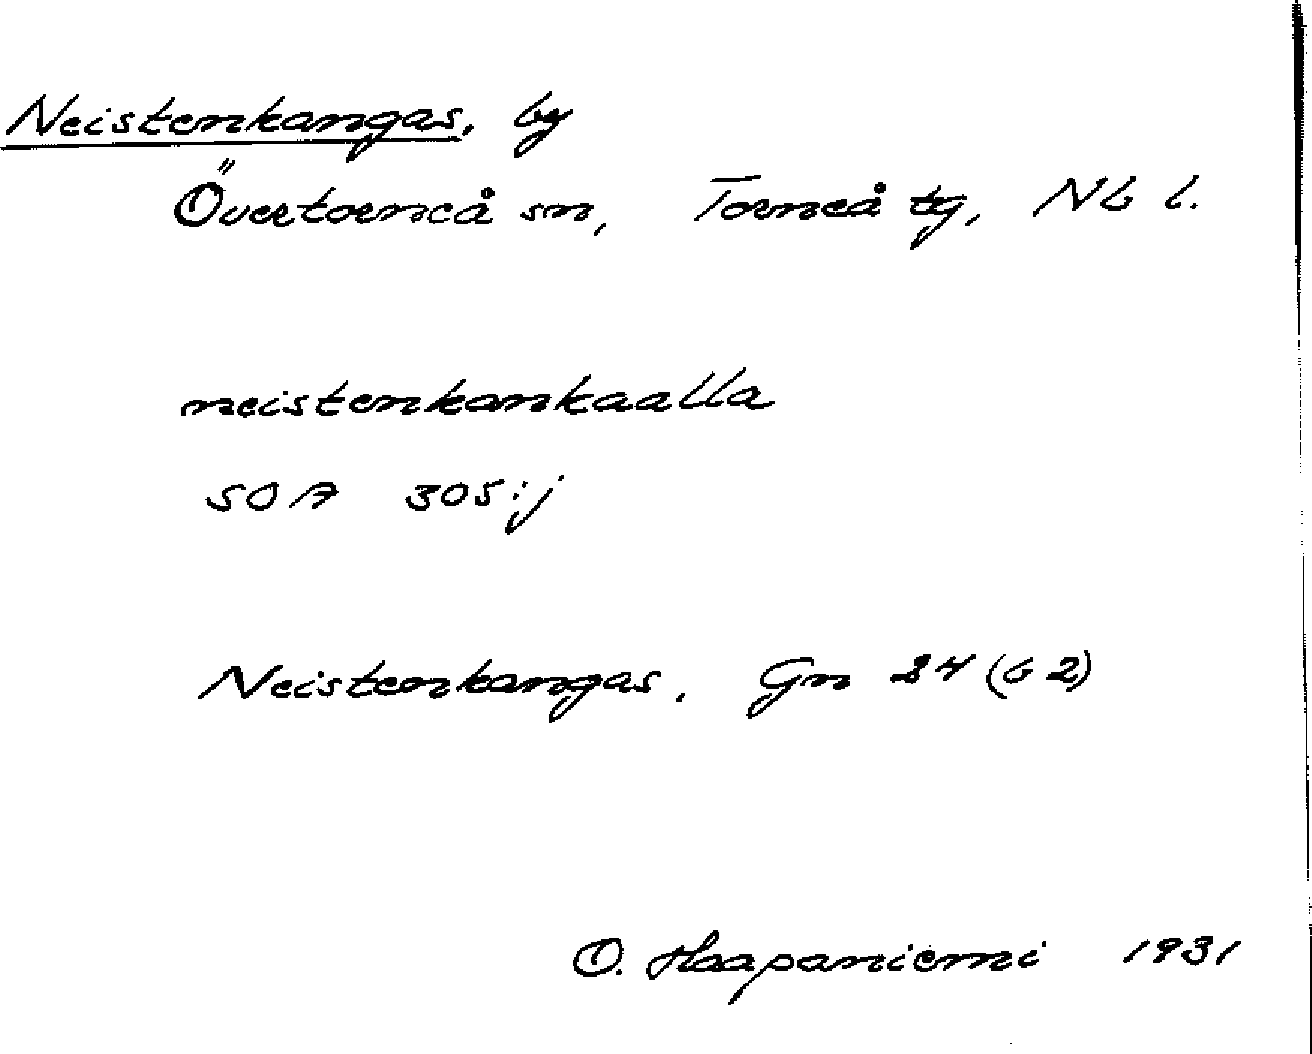 Neistenkangas, by
Övertorneå sn, Torneå tg, Nb l.
neistenkankaalla
SOA 305:j
Neistenkangas, Gn 24 (62)
O. Haapaniemi 1931